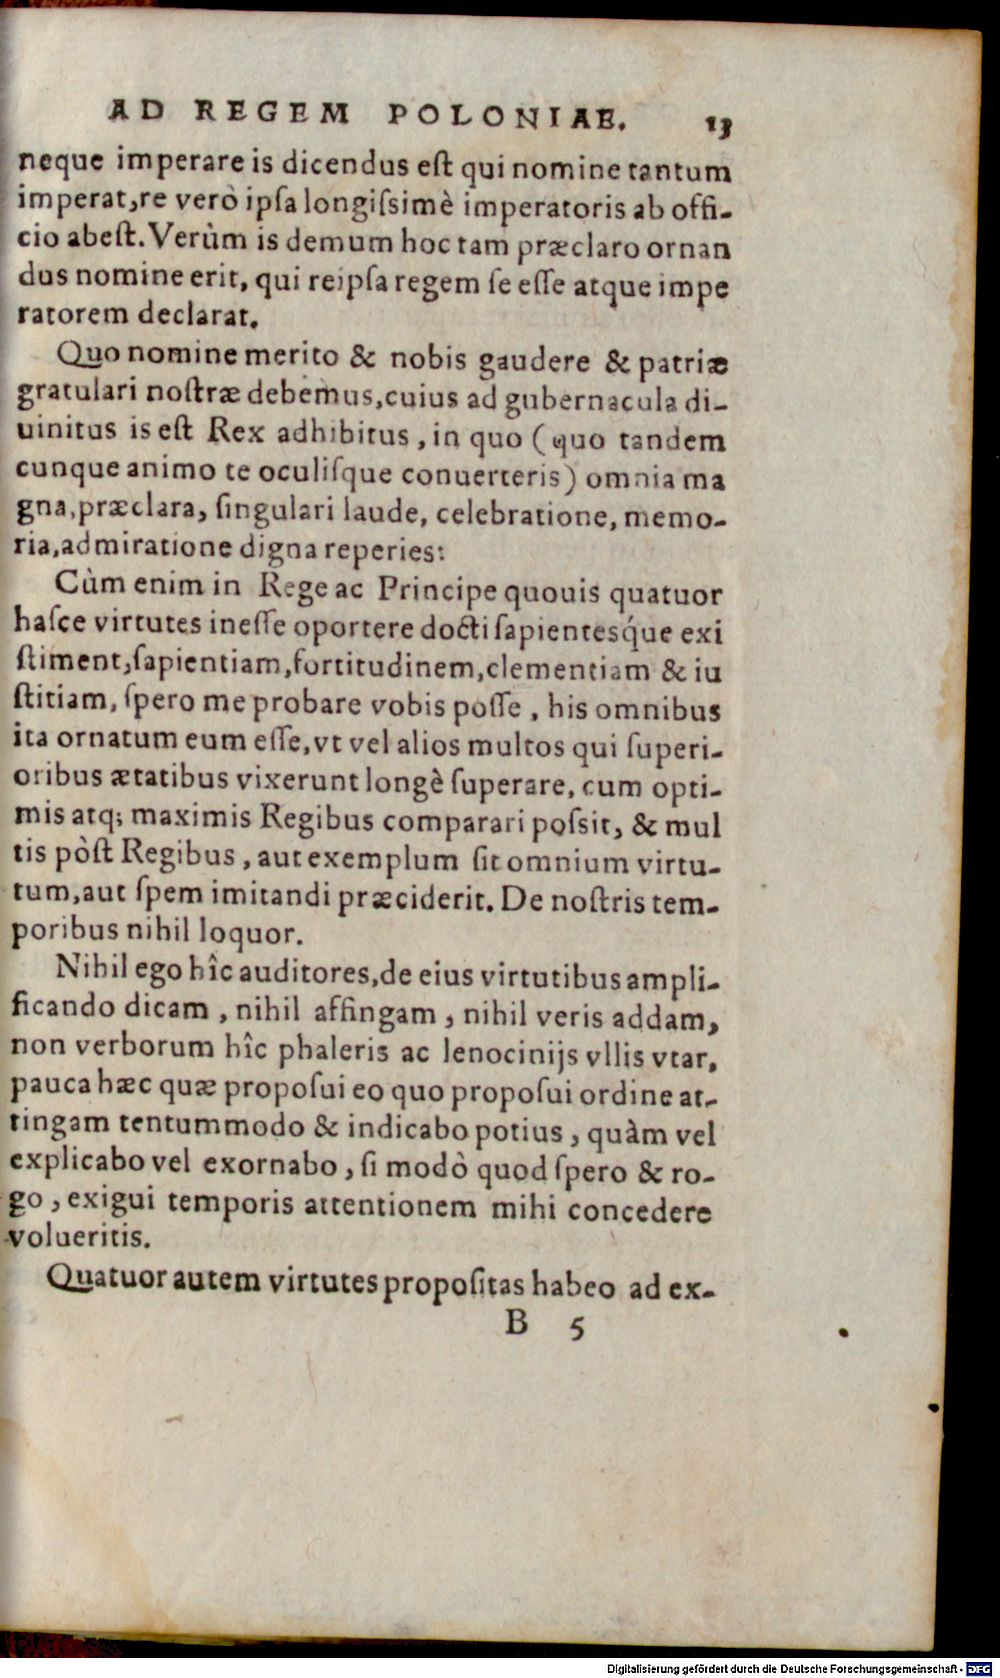 AD REGEM POLONIAE. 13
neque imperare is dicendus eſt qui nomine tantum
imperat, re verò ipſa longiſsimè imperatoris ab offi-
cio abeſt. Verùm is demum hoc tam præclaro ornan
dus nomine erit, qui reipſa regem ſe eſſe atque impe
ratorem declarat.
Quo nomine merito & nobis gaudere & patriæ
gratulari noſtræ debemus, cuius ad gubernacula di-
uinitus is eſt Rex adhibitus, in quo (quo tandem
cunque animo te oculiſque conuerteris) omnia ma
gna, præclara, ſingulari laude, celebratione, memo-
ria, admiratione digna reperies:
Cùm enim in Rege ac Principe quouis quatuor
haſce virtutes ineſſe oportere docti ſapientesq́ue exi
ſtiment, ſapientiam, fortitudinem, clementiam & iu
ſtitiam, ſpero me probare vobis poſſe, his omnibus
ita ornatum eum eſſe, vt vel alios multos qui ſuperi-
oribus ætatibus vixerunt longè ſuperare, cum opti-
mis atq; maximis Regibus comparari poſsit, & mul
tis pòſt Regibus, aut exemplum ſit omnium virtu-
tum, aut ſpem imitandi præciderit. De noſtris tem-
poribus nihil loquor.
Nihil ego hîc auditores, de eius virtutibus ampli-
ficando dicam, nihil affingam, nihil veris addam,
non verborum hîc phaleris ac lenocinijs vllis vtar,
pauca hæc quæ propoſui eo quo propoſui ordine at-
tingam tentummodo & indicabo potius, quàm vel
explicabo vel exornabo, ſi modò quod ſpero & ro-
go, exigui temporis attentionem mihi concedere
volueritis.
Quatuor autem virtutes propoſitas habeo ad ex-
B 5
Digitalisierung gefördert durch die Deutsche Forschungsgemeinschaft - DFG